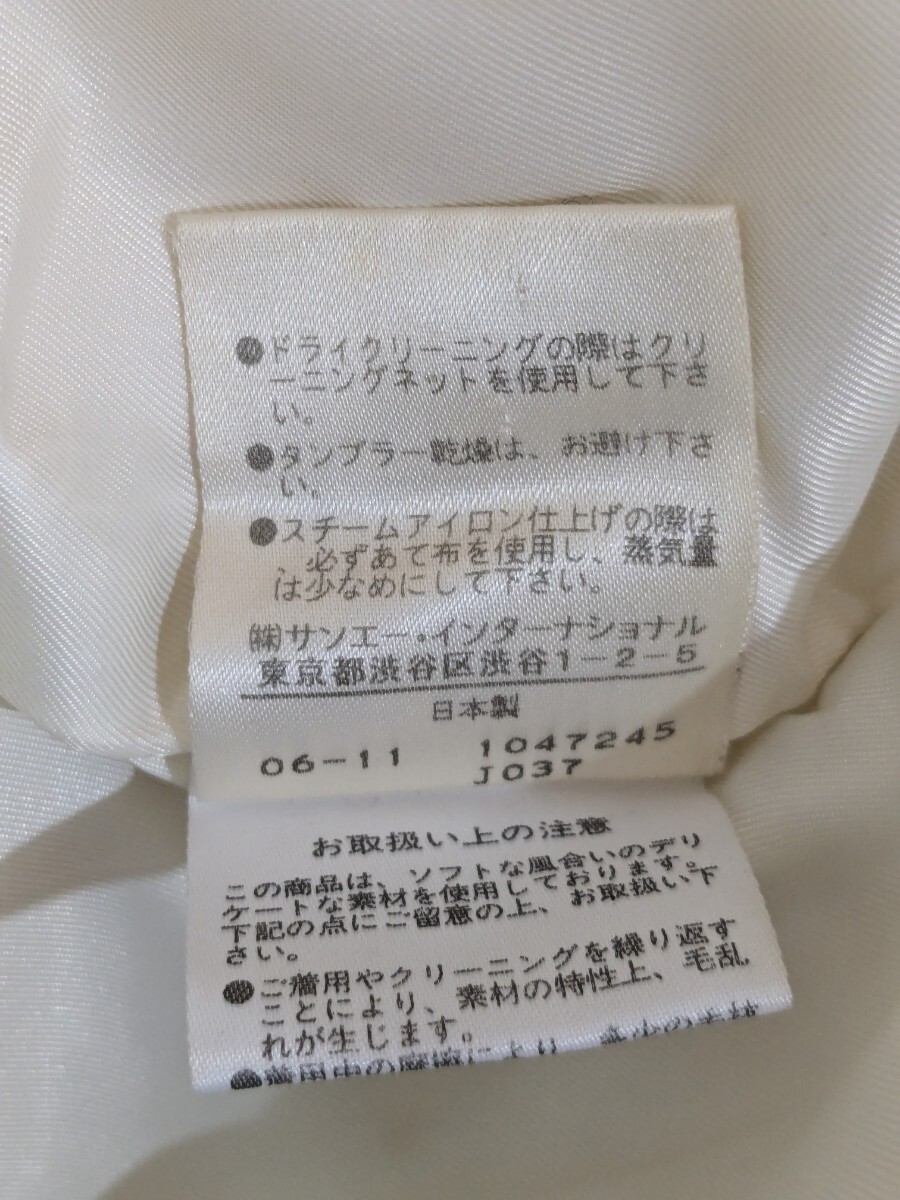 ●ドライクリーニングの際はクリ
ーニングネットを使用して下さ
い。
●タンブラー乾燥は、お避け下さ
い。
●スチームアイロン仕上げの際は
、必ずあて布を使用し、蒸気量
は少なめにして下さい。
㈱サンエー・インターナショナル
東京都渋谷区渋谷1-2-5
日本製
06-11 1047245
J037
お取扱い上の注意
この商品は、ソフトな風合いのデリ
ケートな素材を使用しております。
下記の点にご留意の上、お取扱い下
さい。
●ご着用やクリーニングを繰り返す
ことにより、素材の特性上、毛乱
れが生じます。
●着用中の摩擦により、多少の毛抜